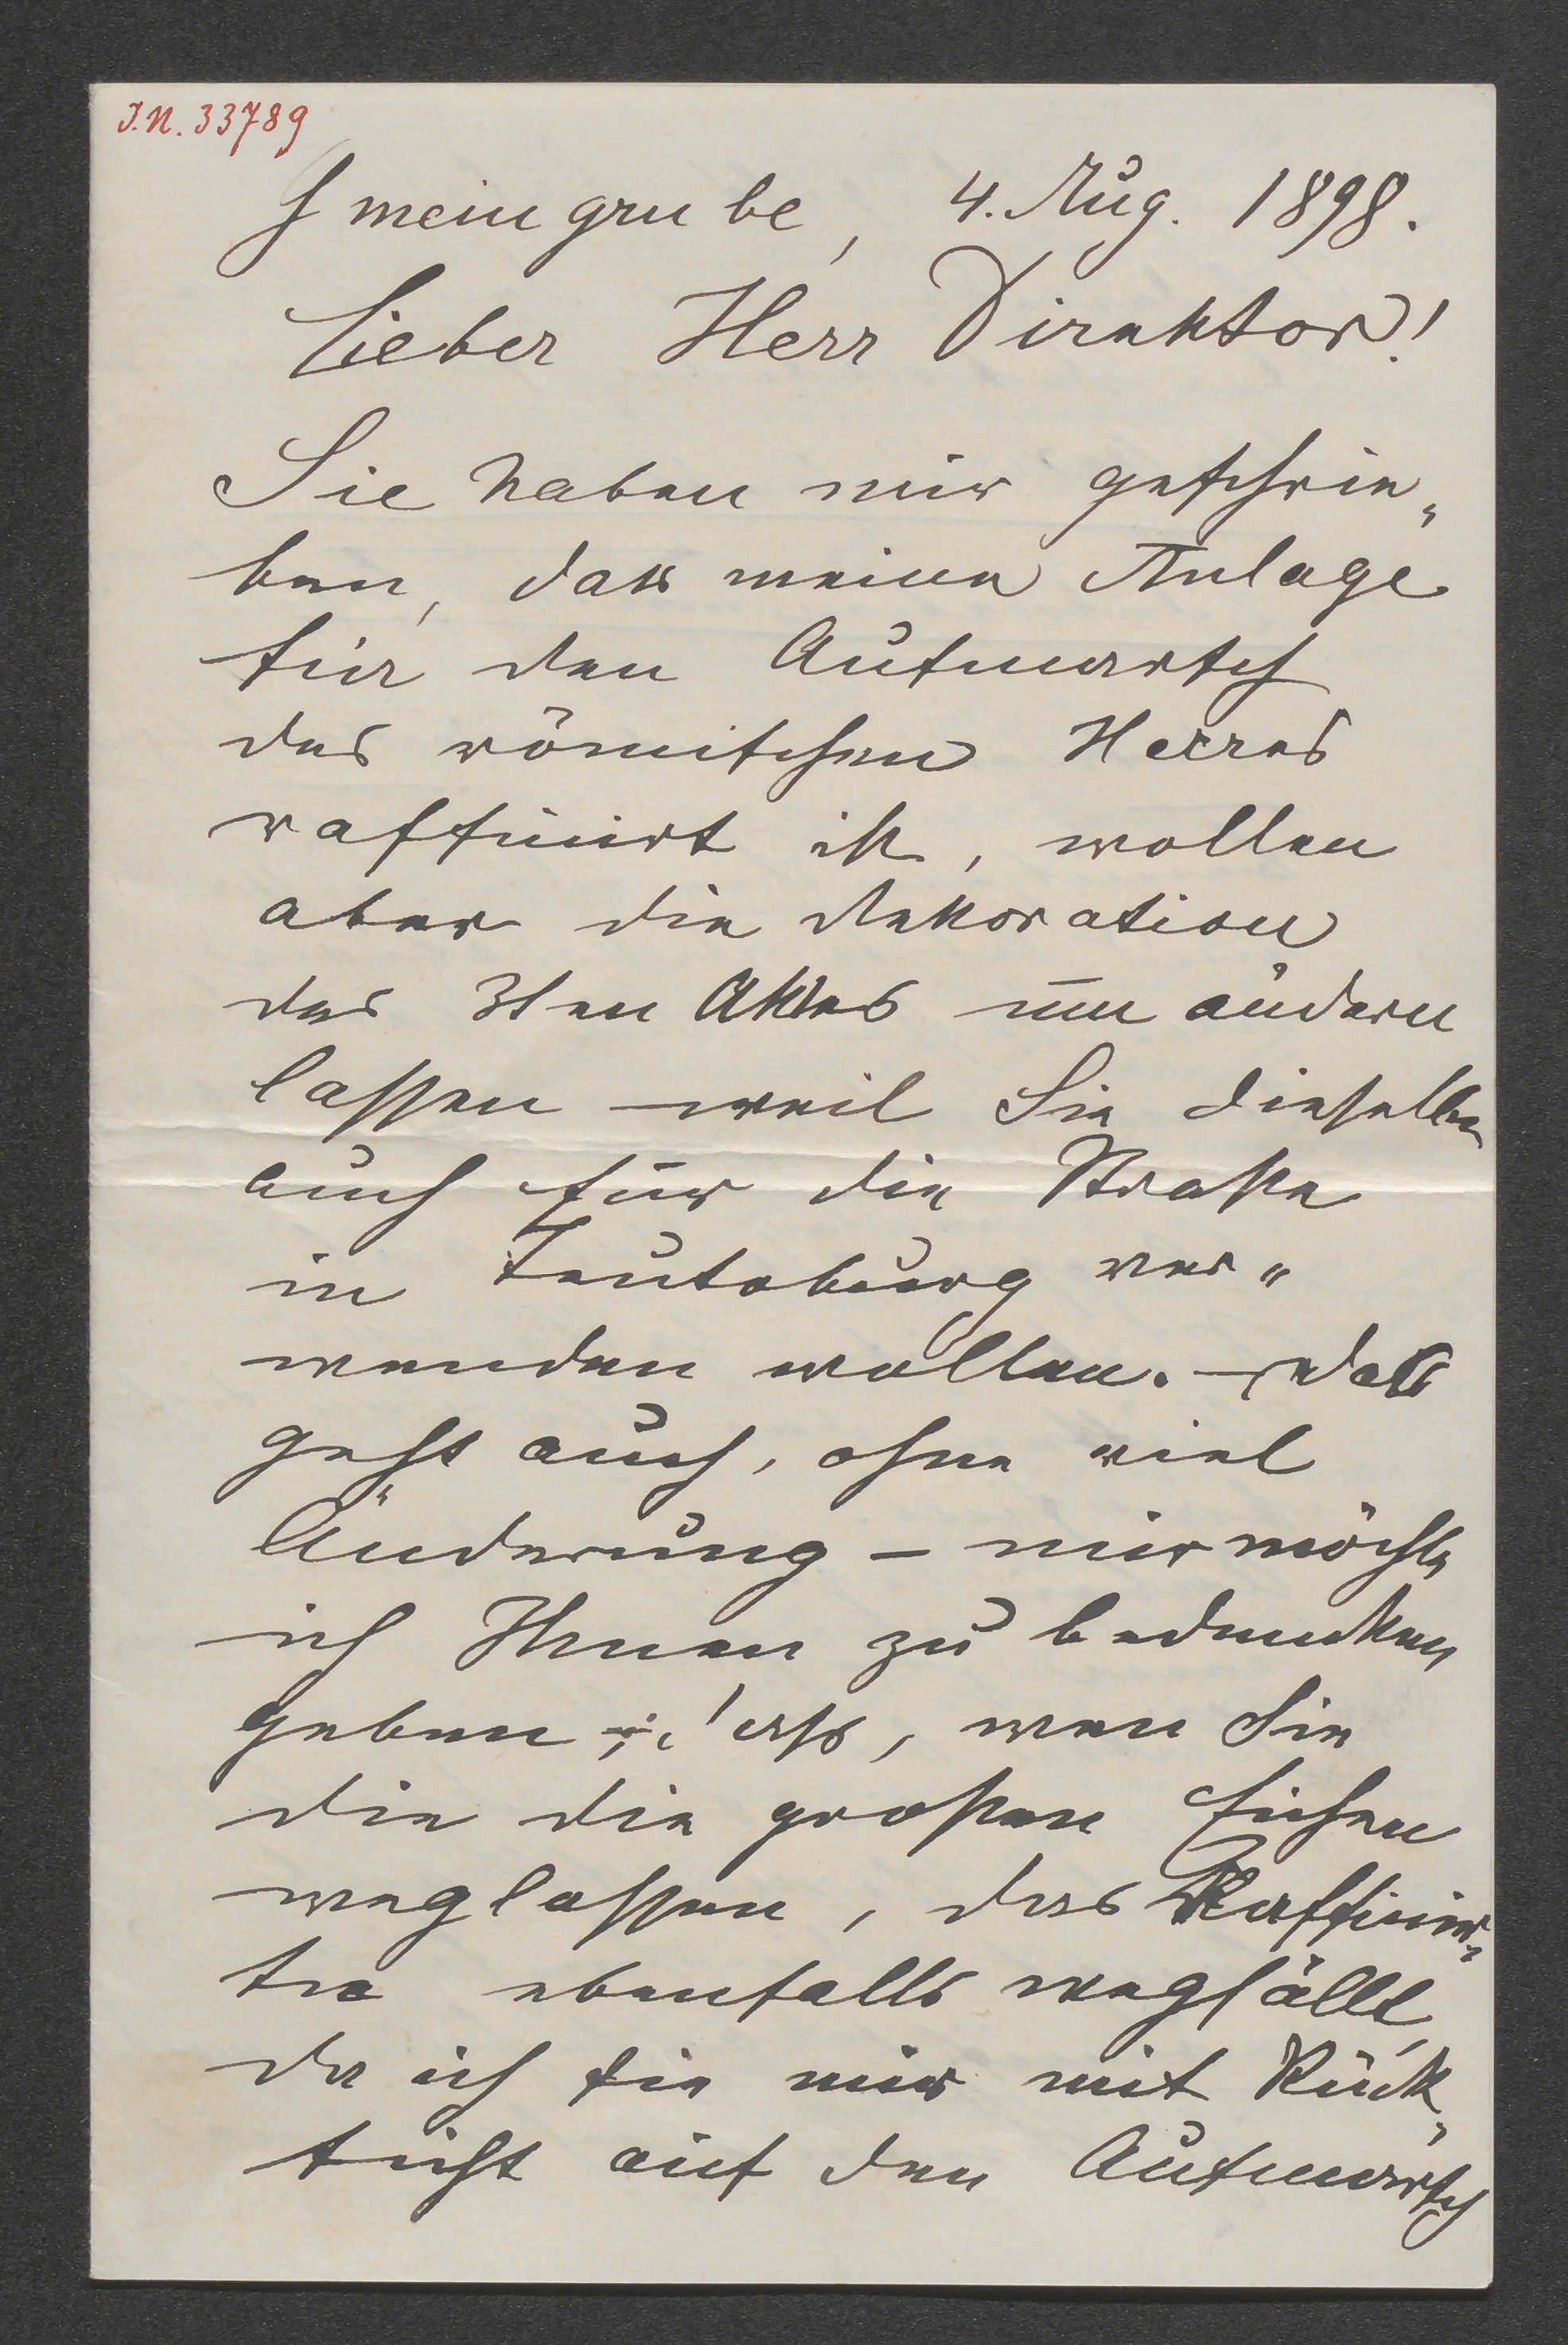 J.N. 33789
Gmeingrube, 4. Aug. 1898.
Lieber Herr Direktor!
Sie haben mir geschrie„
ben, dass meine Anlage
für den Aufmarsch
des römischen Heeres
raffinirt ist, wollen
aber die Dekoration
des 3ten Aktes nun ändern
lassen weil Sie dieselbe
auch für die Straße
in Teutoburg ver„
wenden wollen. – das
geht auch, ohne viel
Änderung – nur möchte
ich Ihnen zu bedenken
geben, dass, wenn Sie
die die großen Eichen
weglassen, das Raffinir„
te ebenfalls wegfällt,
da ich sie nur mit Rück„
sicht auf den Aufmarsch